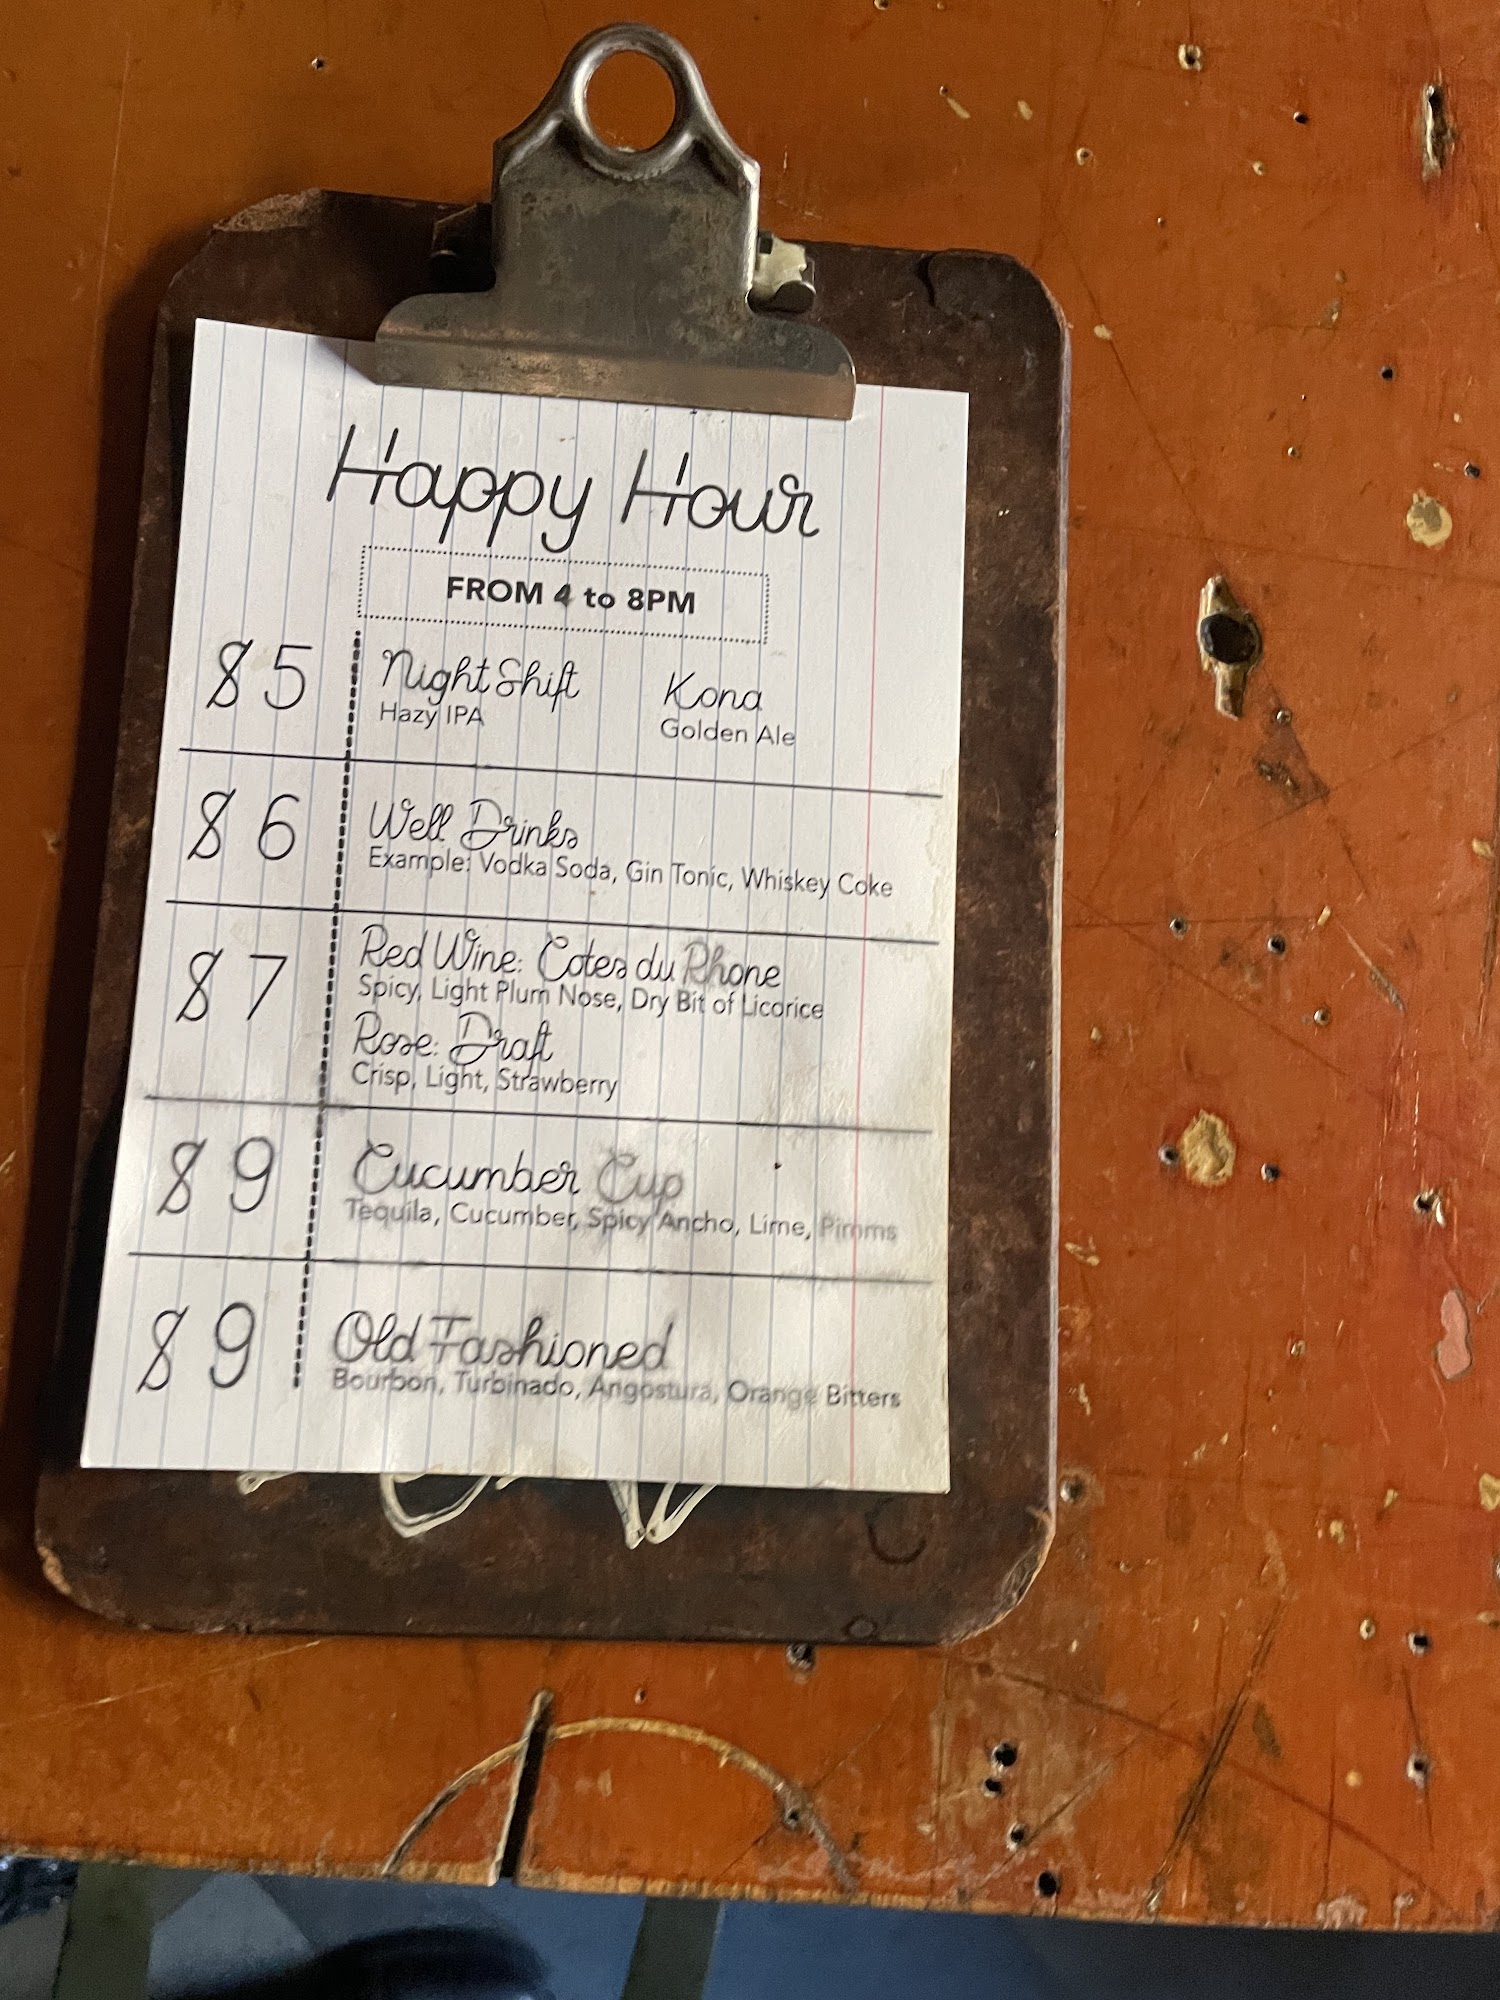 Happy Hour
FROM 4 to 8PM
$5
Night Shift
Hazy IPA
Kona
Golden Ale
$6
Well Drinks
Example: Vodka Soda, Gin Tonic, Whiskey Coke
$7
Red Wine: Cotes du Rhone
Spicy, Light Plum Nose, Dry Bit of Licorice
Rose: Draft
Crisp, Light, Strawberry
$9
Cucumber Cup
Tequila, Cucumber, Spicy Ancho, Lime, Pimms
$9
Old Fashioned
Bourbon, Turbinado, Angostura, Orange Bitters